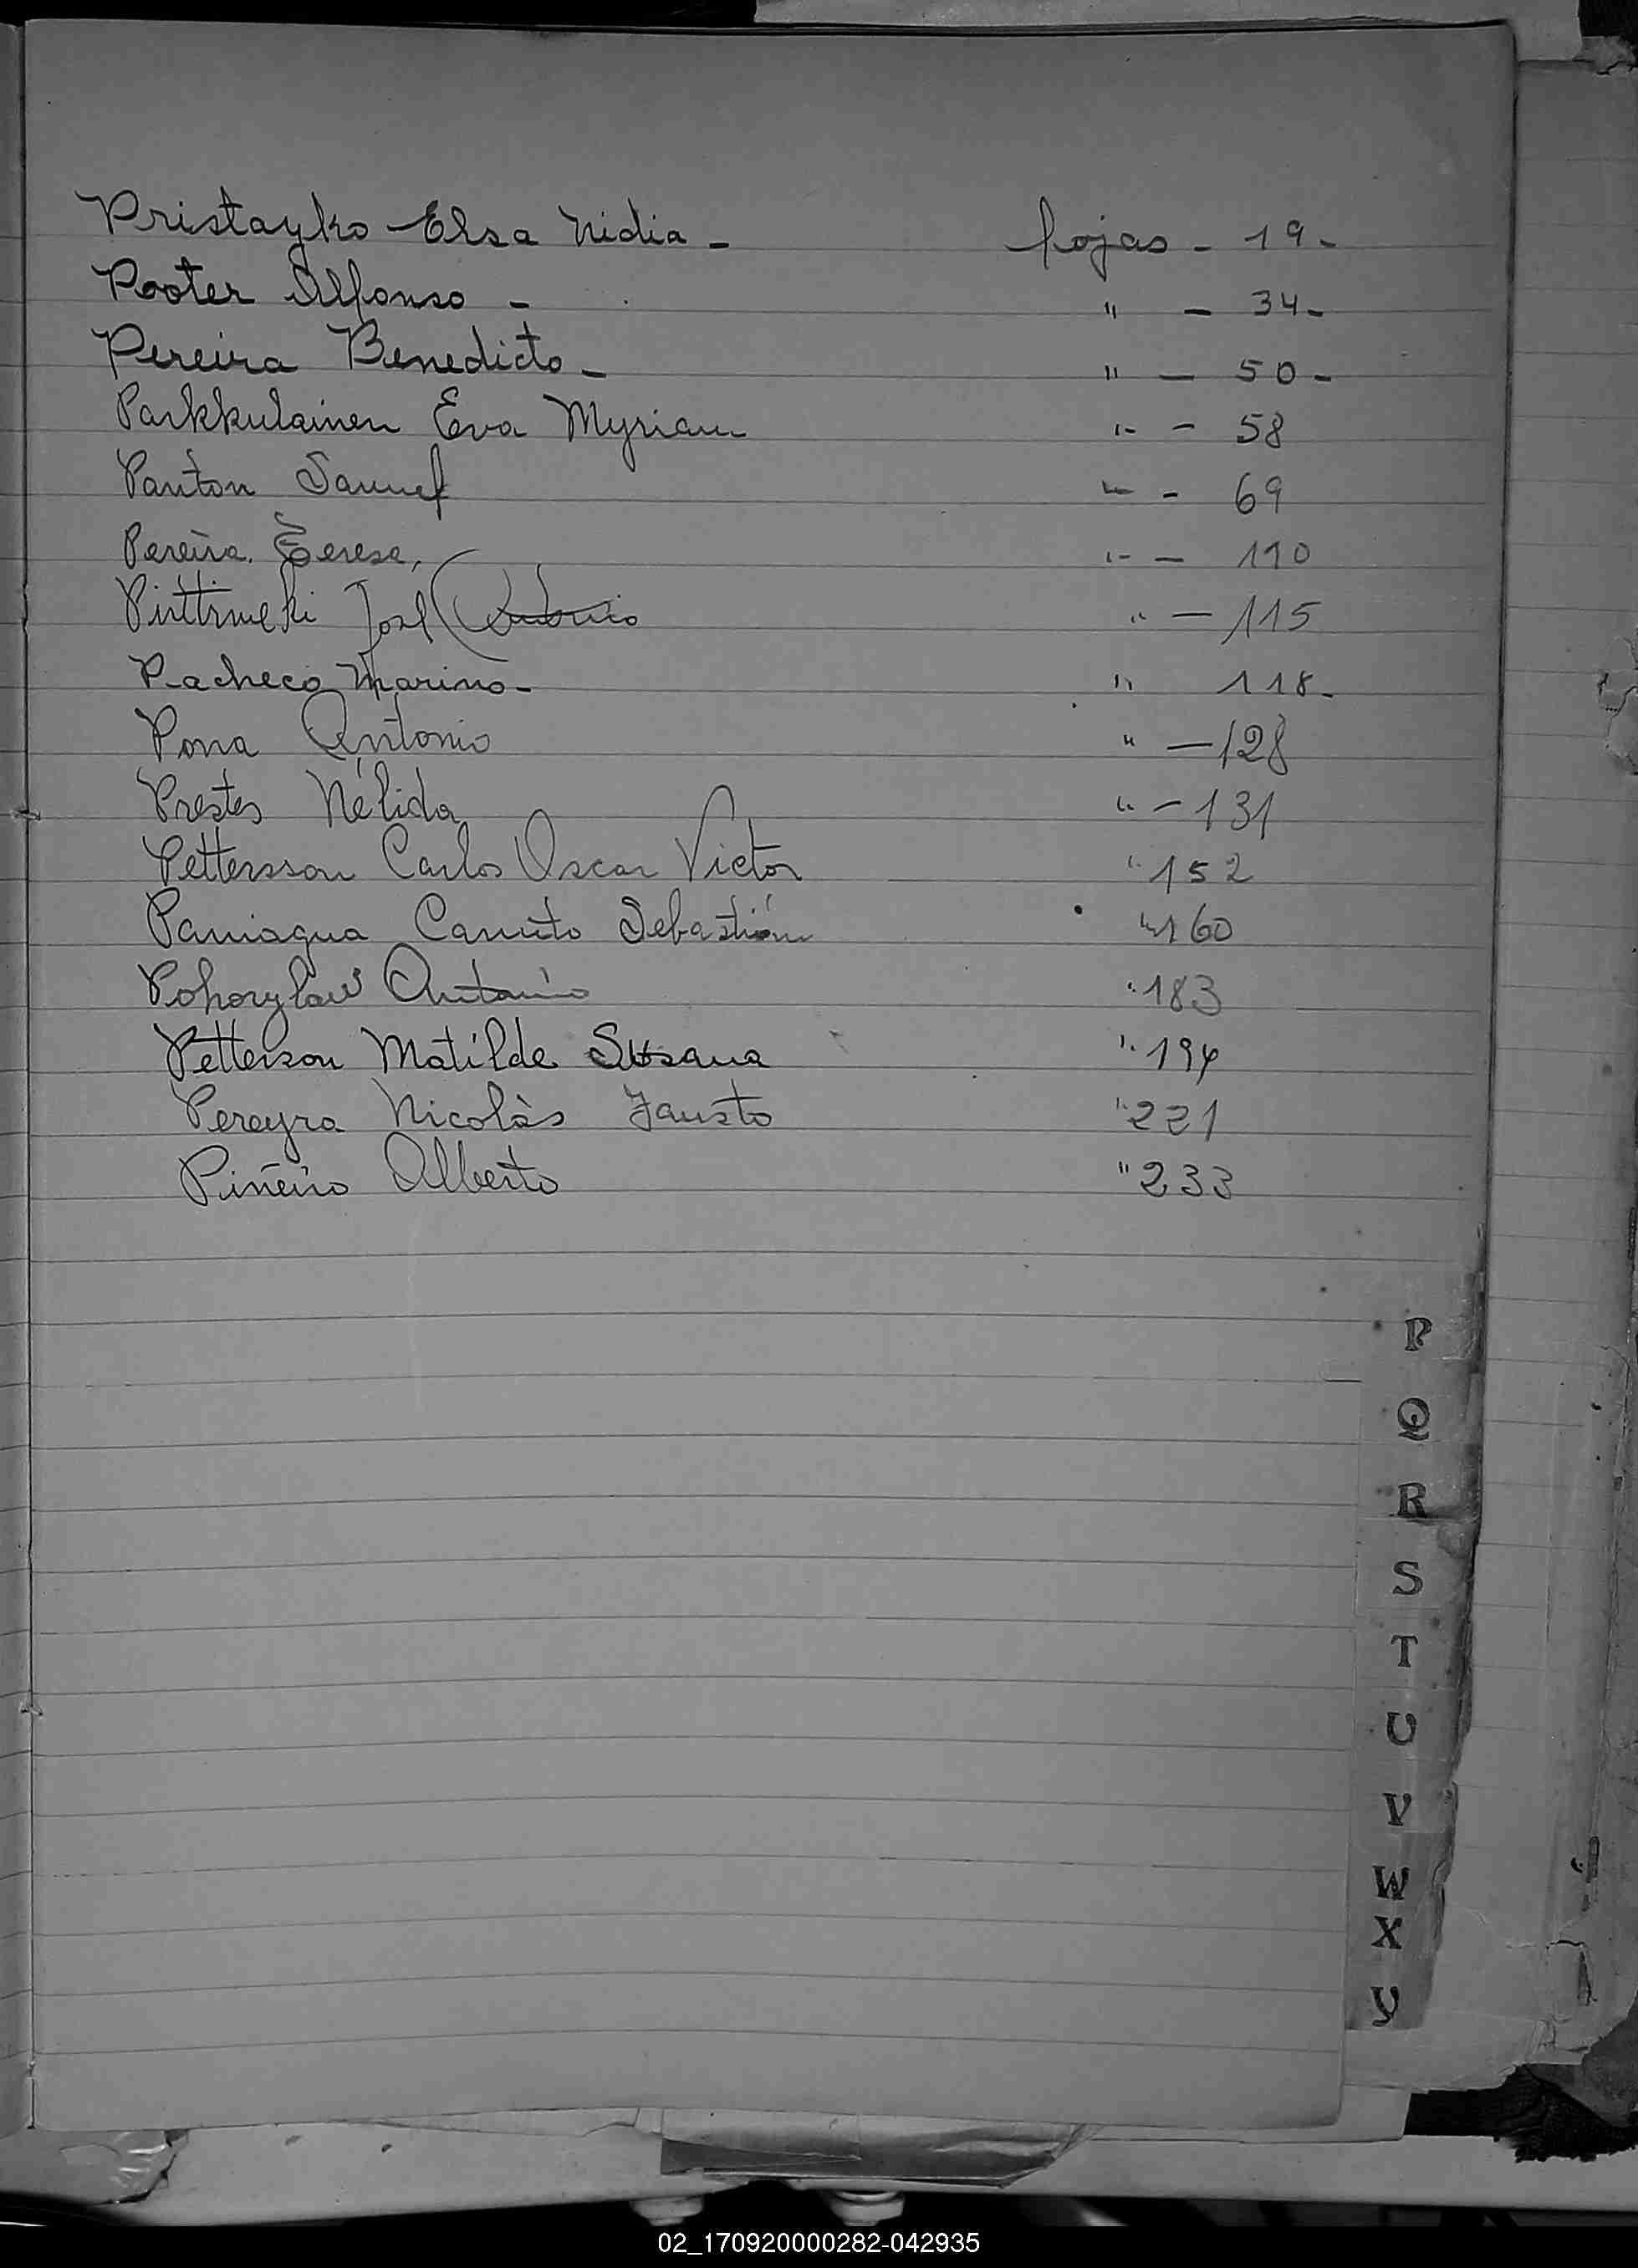 Pristayko Elsa Nidia - hojas - 19 -
Pooter Alfonso - " - 34 -
Pereira Benedicto - " - 50 -
Parkkulainen Eva Myriam " - 58
Panton Samuel " - 69
Pereira Teresa, " - 110
José Antonio " - 115
Pacheco Marino - " 118 -
Pona Antonio " - 128
Prestes Nélida " - 131
Pettersson Carlos Oscar Victor " 152
Paniagua Canuto Sebastián " 160
Antonio " 183
Petterson Matilde Susana " 194
Pereyra Nicolàs Fausto " 221
Piñeiro Alberto " 233
P
Q
R
S
T
U
V
W
X
Y
02_170920000282-042935